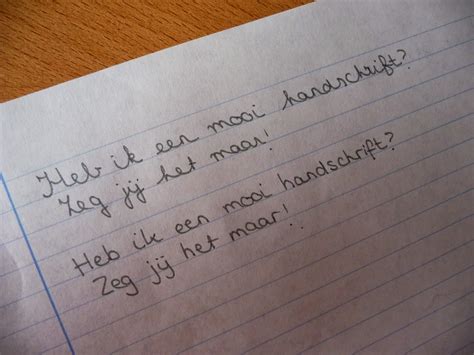 Heb ik een mooi handschrift?
Zeg jij het maar!
Heb ik een mooi handschrift?
Zeg jij het maar!